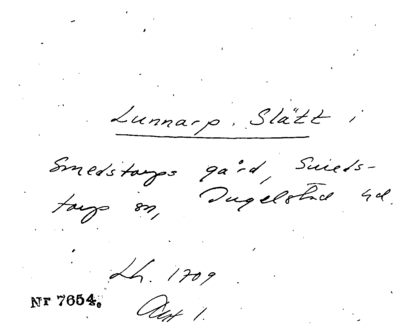 Lunnarp. Slätt i
Smedstorps gård, Smeds-
torps sn, Ingelstad hd.
Lh. 1709
Akt 1.
Nr 7654.